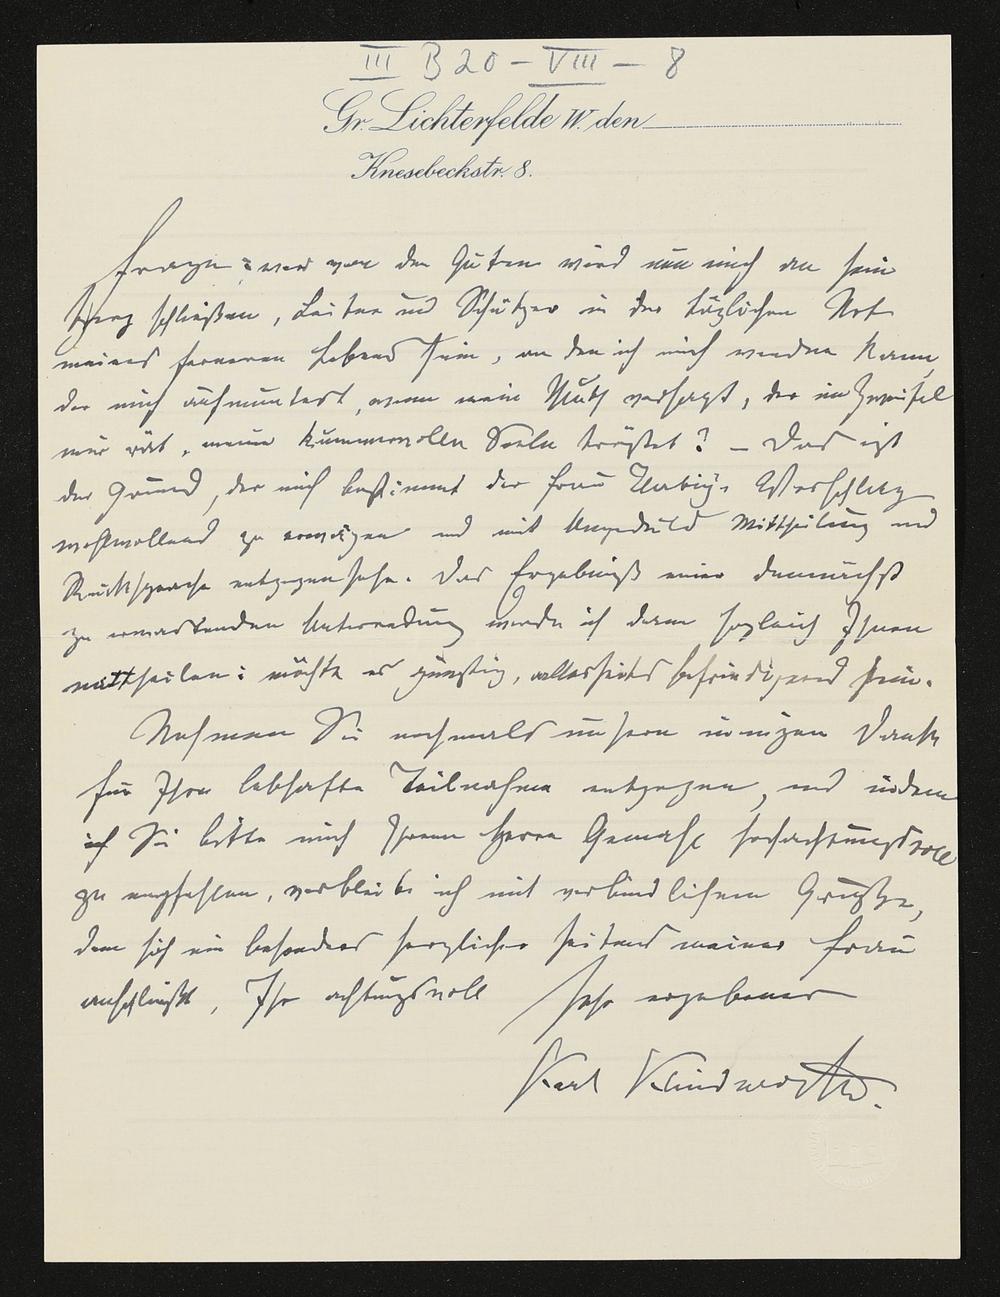 III B 20 – VIII – 8
Gr. Lichterfelde W. den
Knesebeckstr. 8.
Frage: wer von den Guten wird nun mich an sein
Herz schließen, Leiter und Schützer in der täglichen Not
meines ferneren Lebens sein, an den ich mich wenden kann,
der mich aufmuntert, wenn mein Muth versagt, der im Zweifel
mir rät, meine kummervolle Seele tröstet? – Das ist
der Grund, der mich bestimmt der Frau Vorschlag
wohlwollend zu erwägen und mit Ungeduld Mittheilung und
Rücksprache entgegensehe. Das Ergebniß einer demnächst
zu erwartenden Unterredung werde ich dann sogleich Ihnen
mittheilen: möchte es günstig, allerseits befriedigend sein.
Nehmen Sie nochmals unsern innigen Dank
für Ihre lebhafte Teilnahme entgegen, und indem
ich Sie bitte mich Ihrem Herrn Gemahl hochachtungsvoll
zu empfehlen, verbleibe ich mit verbindlichem Gruße,
dem sich ein besonders herzlicher seitens meiner Frau
anschließt, Ihr achtungsvoll sehr ergebener
Karl Klindworth.